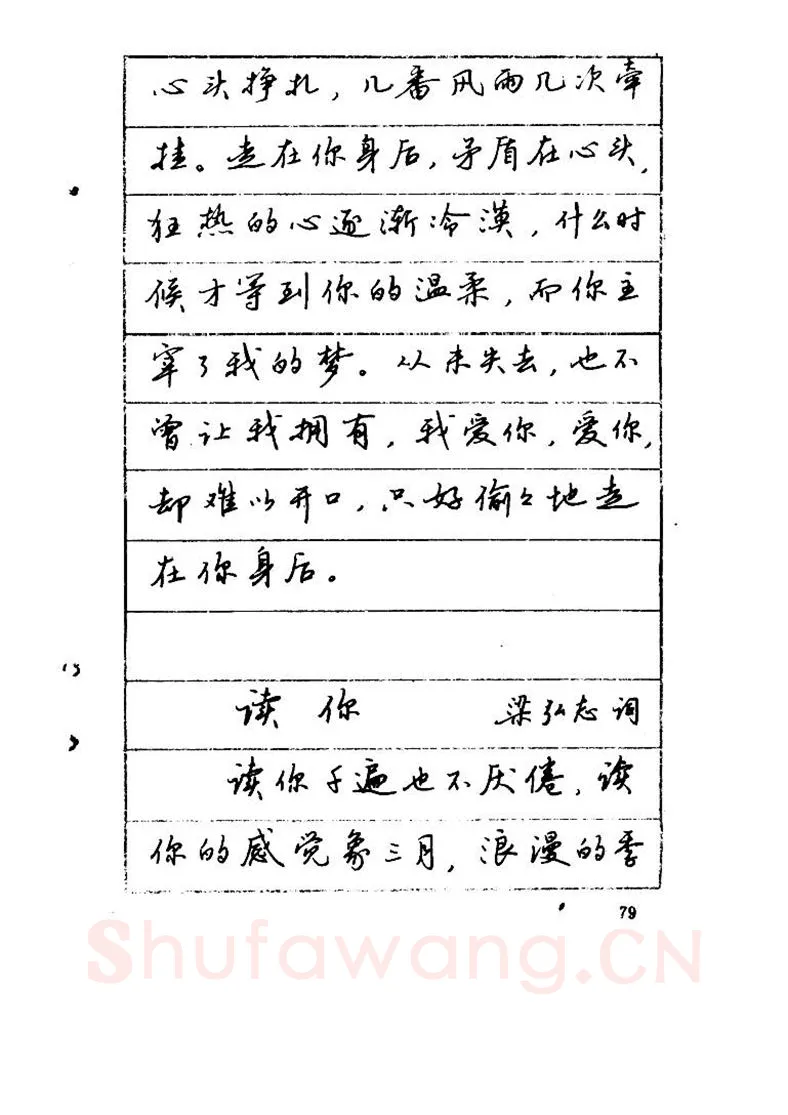 心头挣扎，几番风雨几次牵
挂。走在你身后，矛盾在心头，
狂热的心逐渐冷漠，什么时
候才等到你的温柔，而你主
宰了我的梦。从未失去，也不
曾让我拥有，我爱你，爱你，
却难以开口，只好偷々地走
在你身后。
读你 梁弘志词
读你千遍也不厌倦，读
你的感觉象三月，浪漫的季
79
Shufawang.CN